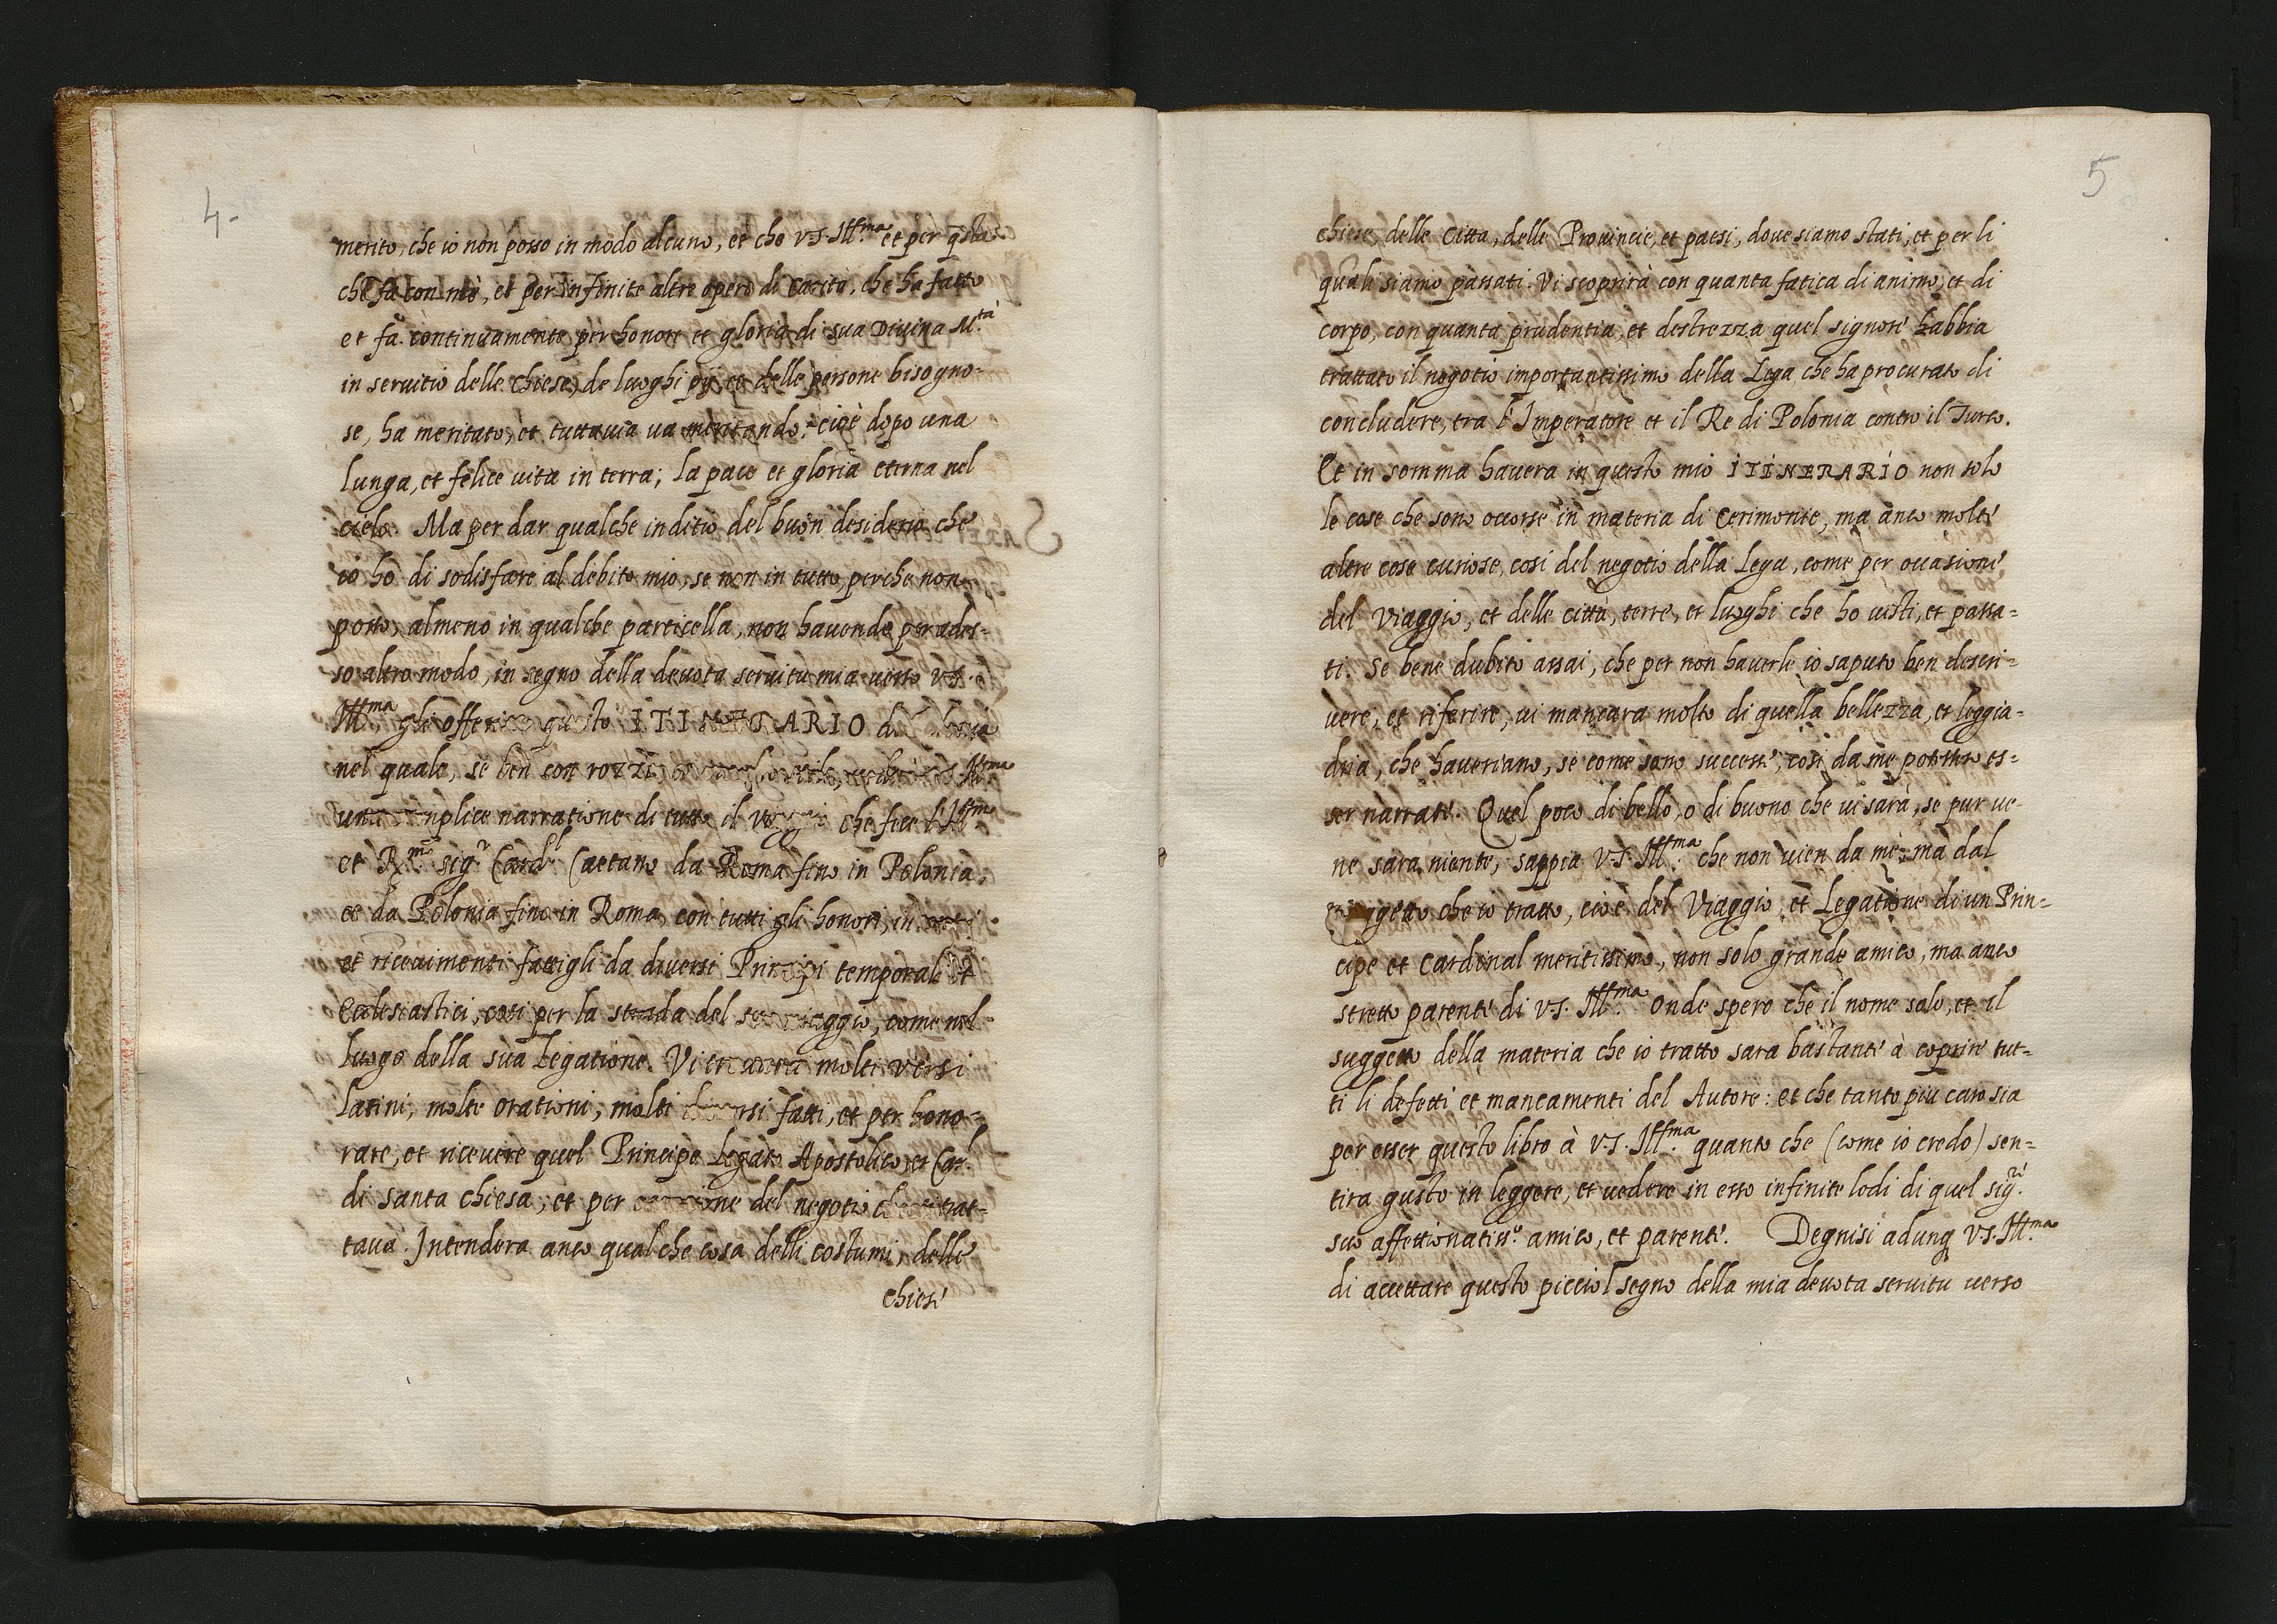 4.
merito, che io non posso in modo alcuno, et che V.S. Ill.ma et per q̃sta
che fa con mè, et per infinite altre opere di Carità, che ha fatto
et fa continuamente per honore et gloria di sua Divina M.tà
in seruitio delle Chiese, de luoghi pij, et delle persone bisogno-
se, ha meritato, et tuttauia ua meritando: cioè dopo una
lunga, et felice uita in terra; la pace et gloria eterna nel
cielo. Ma per dar qualche inditio del buon desiderio che
io ho di sodisfare al debito mio, se non in tutto, perche non
posso, almeno in qualche particella, non hauendo per ades-
so altro modo, in segno della deuota seruitù mia uerso V.S.
Ill.ma gli offerisco questo ITINERARIO di Polonia
nel quale, se ben con rozzi, Ill.ma
una simplice narratione di tutto il Viaggio che fece l'Ill.mo
et R.mo sig.r Card.l Caetano da Roma fino in Polonia,
et da Polonia fino in Roma, con tutti gli honori,
et riceuimenti fattigli da diuersi Principi temporali et
Ecclesiastici, cosi per la strada del suo uiaggio, come nel
luogo della sua Legatione. Vi trouarà molti Versi
latini, molte orationi, molti fatti, et per hono-
rare, et riceuere quel Principe Legato Apostolico, et Car.l
di santa chiesa, et per occasione del negotio che si trat-
taua. Intenderà anco qualche cosa delli costumi, delle
chiese
5
chiese, delle Città, delle Prouincie, et paesi, doue siamo stati, et per li
quali siamo passati. Vi scoprirà con quanta fatica di animo, et di
corpo, con quanta prudentia, et destrezza quel signore habbia
trattato il negotio importantissimo della Lega, che ha procurato di
concludere, tra l'Imperatore et il Re di Polonia contro il Turco.
Et in somma hauera in questo mio ITINERARIO non solo
le cose che sono occorse in materia di Cerimonie, ma anco molte
altre cose curiose, cosi del negotio della Lega, come per occasione
del Viaggio, et delle città, terre, et luoghi che ho uisti, et passa-
ti. Se bene dubito assai, che per non hauerle io saputo ben descri-
uere, et riferire, ui mancara molto di quella bellezza, et leggia-
dria, che haueriano, se come sono successe, cosi da me potessero es-
ser narrate. Quel poco di bello, o di buono che ui sarà, se pur ue-
ne sara niente, sappia V.S. Ill.ma che non uien da mè, ma dal
suggetto che io tratto, cioè del Viaggio, et Legatione di un Prin-
cipe et Cardinal meritissimo, non solo grande amico, ma anco
stretto parente di V.S. Ill.ma Onde spero che il nome solo, et il
suggetto della materia che io tratto sara bastante à coprire tut-
ti li defetti et mancamenti del Autore: et che tanto piu caro sia
per esser questo libro à V.S. Ill.ma quanto che (come io credo) sen-
tira gusto in leggere, et uedere in esso infinite lodi di quel sig.re
suo affettionatiss.o amico, et parente. Degnisi adunq V.S. Ill.ma
di accettare questo picciol segno della mia deuota seruitu uerso